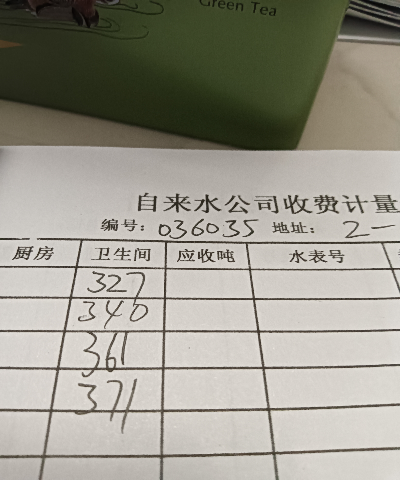 Green Tea
自来水公司收费计量
编号: 036035 地址: 2-
厨房 卫生间 应收吨 水表号
327
340
361
371